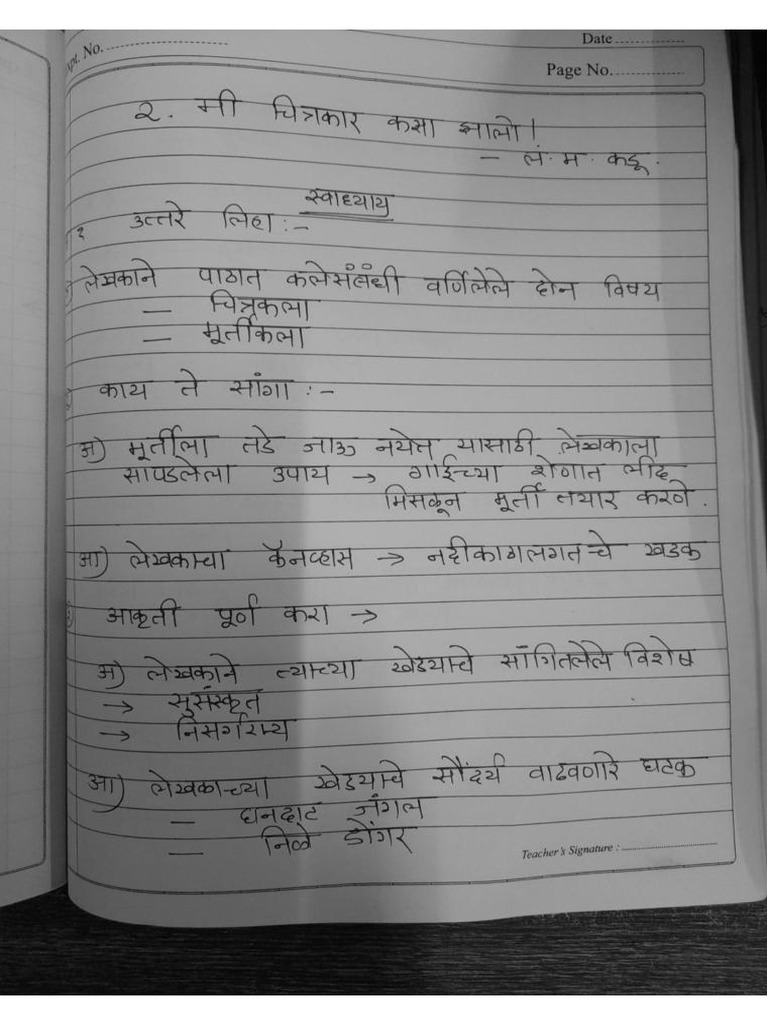 Expt. No.
Date
Page No.
२. मी चित्रकार कसा झालो!
- ल. म. कडू.
स्वाध्याय
१ उत्तरे लिहा :-
लेखकाने पाठात कलेसंबंधी वर्णिलेले दोन विषय
— चित्रकला
— मूर्तीकला
काय ते सांगा :-
अ) मूर्तीला तडे जाऊ नयेत यासाठी लेखकाला
सापडलेला उपाय → गाईच्या शेणात लीद
मिसळून मूर्ती तयार करणे.
आ) लेखकाचा कॅनव्हास → नदीकाठालगतचे खडक
आकृती पूर्ण करा →
अ) लेखकाने त्याच्या खेड्याचे सांगितलेले विशेष
→ सुसंस्कृत
→ निसर्गरम्य
आ) लेखकाच्या खेड्याचे सौंदर्य वाढवणारे घटक
— घनदाट जंगल
— निळे डोंगर
Teacher's Signature :